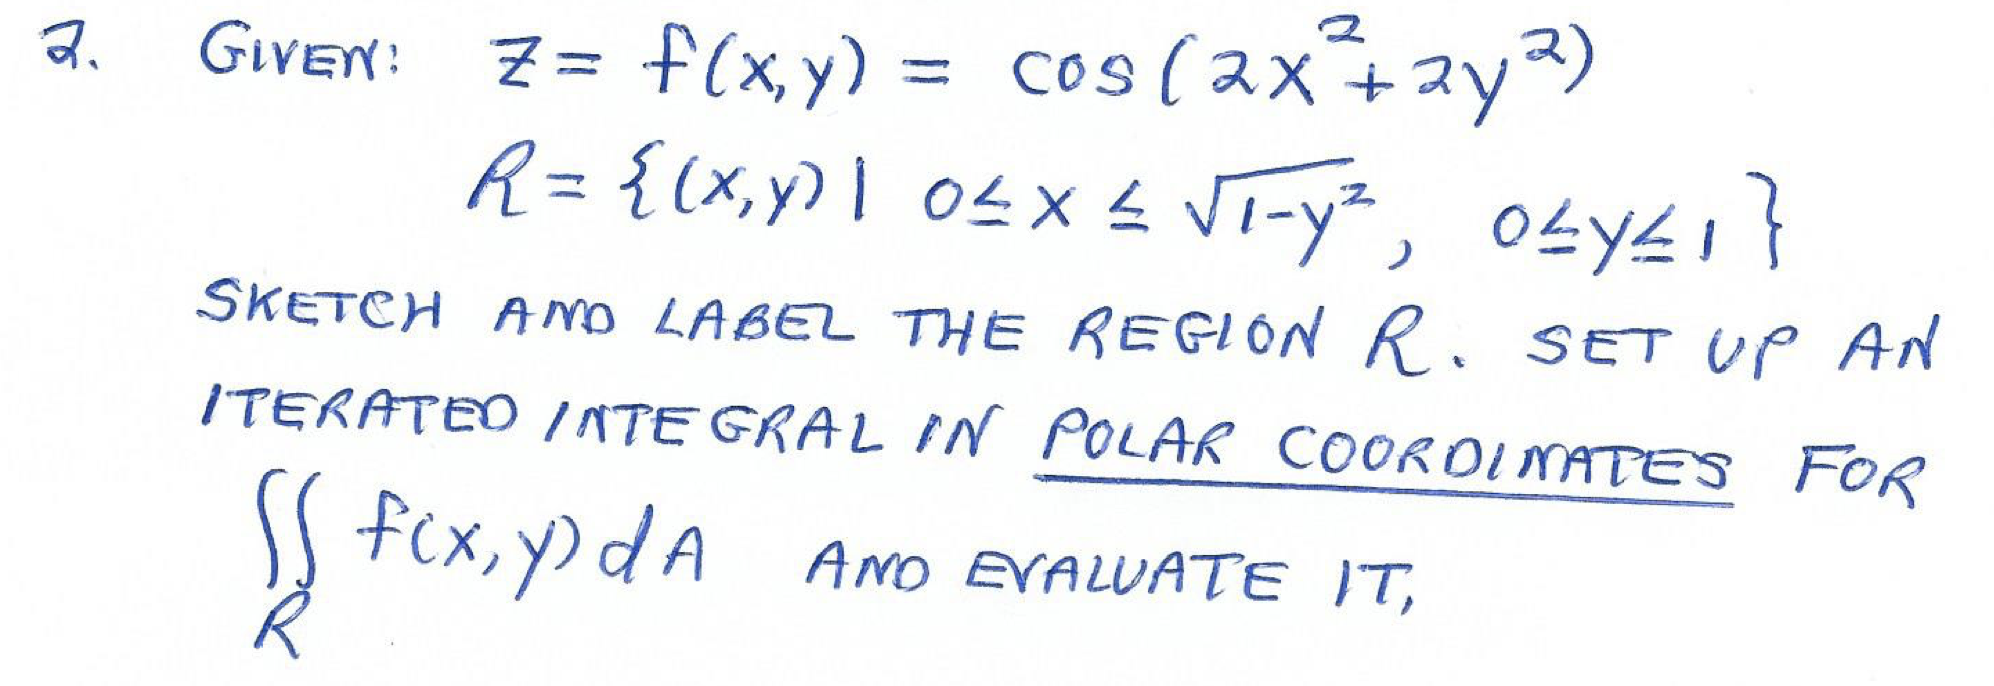 2. GIVEN: z = f(x,y) = cos(2x²+2y²)
R = {(x,y) | 0 ≤ x ≤ √(1-y²), 0≤y≤1}
SKETCH AND LABEL THE REGION R. SET UP AN
ITERATED INTEGRAL IN POLAR COORDINATES FOR
∬_R f(x,y) dA AND EVALUATE IT.